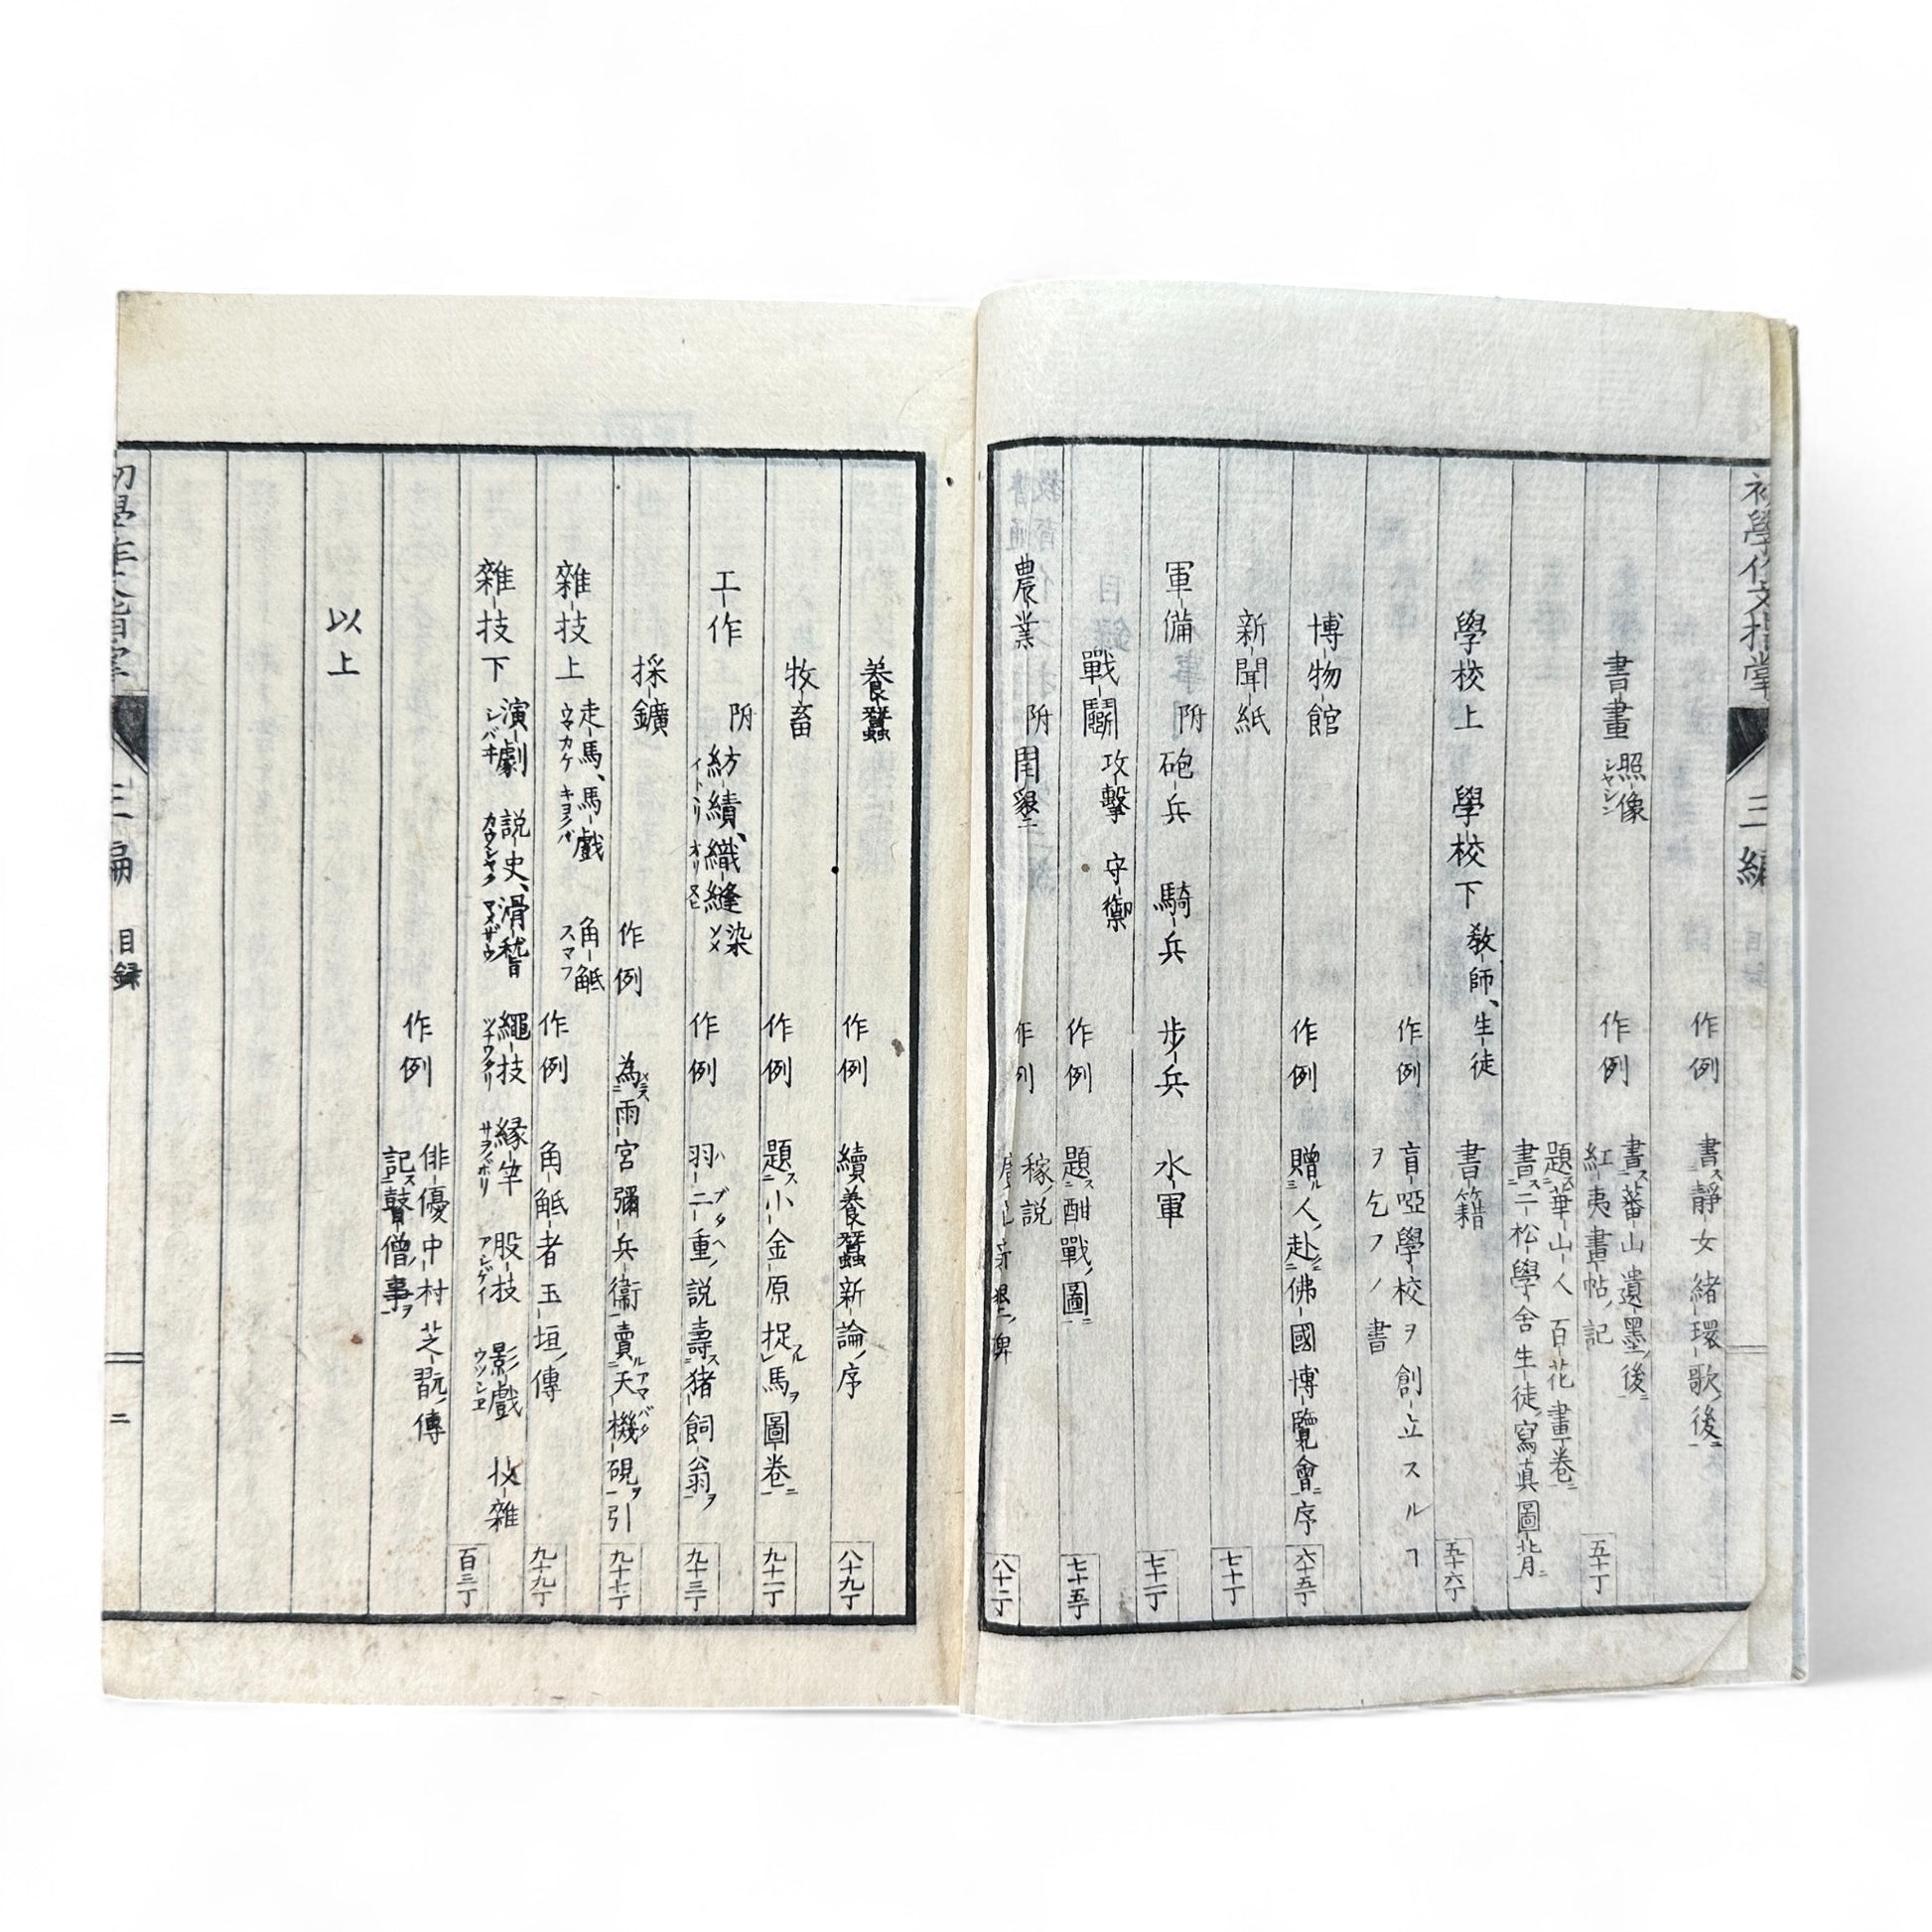 初學作文指掌 三編
作例 書靜女緒環歌後
書畫 照像 シヤシン
作例 書蕃山遺墨後
紅夷畫帖記 五十丁
題華山人百花畫卷
書二松學舍生徒寫真圖背
學校上 學校下 敎師、生徒 書籍 五十六丁
作例 盲啞學校ヲ創立スルヿ
ヲ乞フノ書
博物館 作例 贈人赴佛國博覽會序 六十五丁
新聞紙 七十丁
軍備 附 砲兵 騎兵 步兵 水軍 七十一丁
戰鬭 攻擊 守禦 作例 題酣戰圖 七十五丁
農業 附 開墾 作例 稼説 八十二丁
養蠶 作例 續養蠶新論序 八十九丁
牧畜 作例 題小金原捉馬圖卷 九十一丁
工作 附 紡績、織縫 染 作例 羽二重説壽猪飼翁 九十三丁
採鑛 作例 為雨宮彌兵衞賣天機硯引 九十七丁
雜技上 走馬、馬戲 ウマカケ キヨクバ 角觝 スマフ 作例 角觝者玉垣傳 九十九丁
雜技下 演劇 シバヰ 説史、滑稽 繩技 ツナワタリ 縁竿 サヲノボリ 股技 アシゲイ 影戲 ウツシヱ 技雜 百三丁
作例 俳優中村芝翫傳
記瞽僧事
以上
初學作文指掌 三編 目録 二